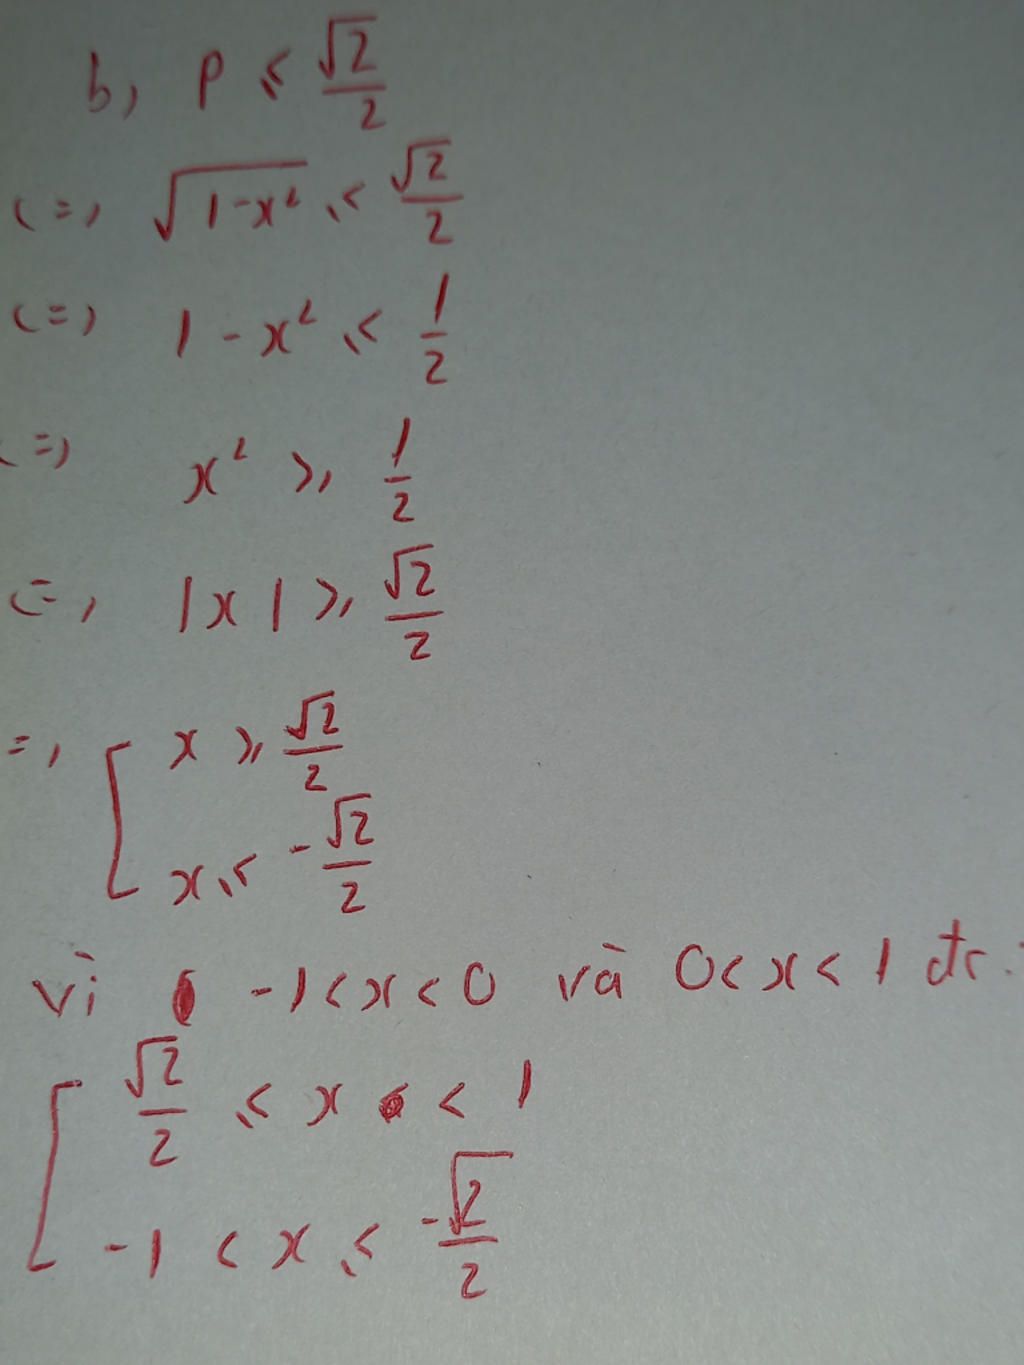 b, P ≤ √2/2
(=, √(1-x²) ≤ √2/2
(=) 1 - x² ≤ 1/2
(=) x² ≥ 1/2
(=, |x| ≥ √2/2
=, [ x ≥ √2/2
x ≤ -√2/2
vì -1 < x < 0 và 0 < x < 1
[ √2/2 ≤ x < 1
-1 < x ≤ -√2/2